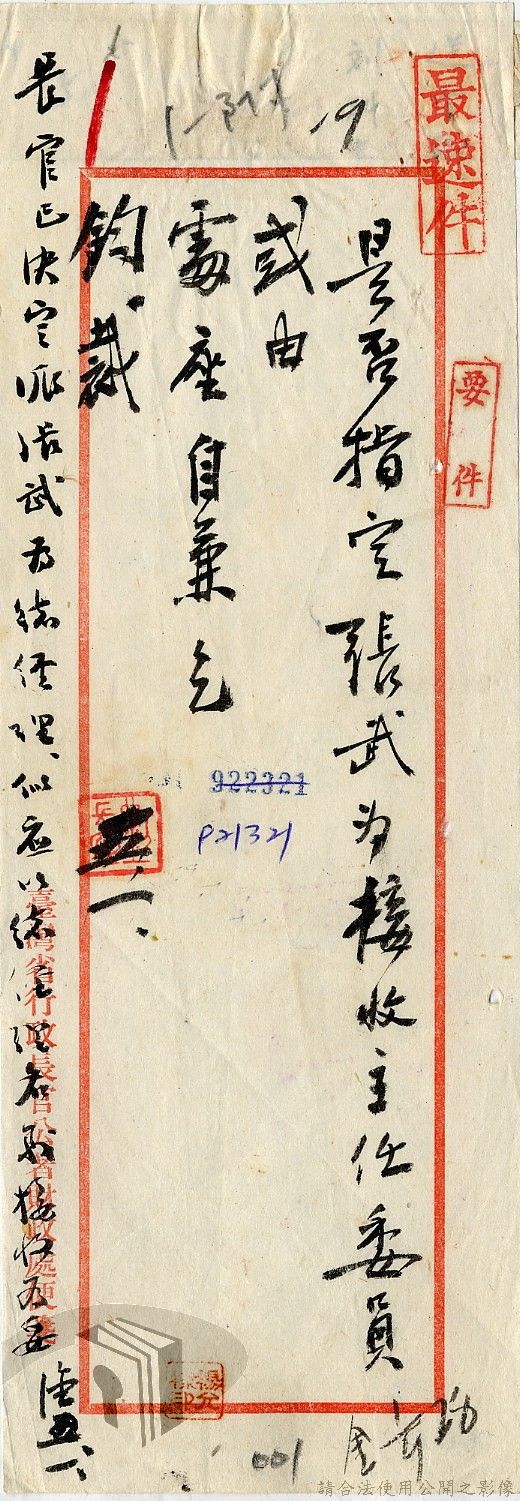 最速件
要件
19
是否指定張武為接收主任委員
或由
處座自兼乞
鈞裁
五、一、
922321
P21321
長官已決定派張武為總經理、似應以總經理名義接收為妥
五、一、
臺灣省行政長官公署財政處便箋
001
請合法使用公開之影像